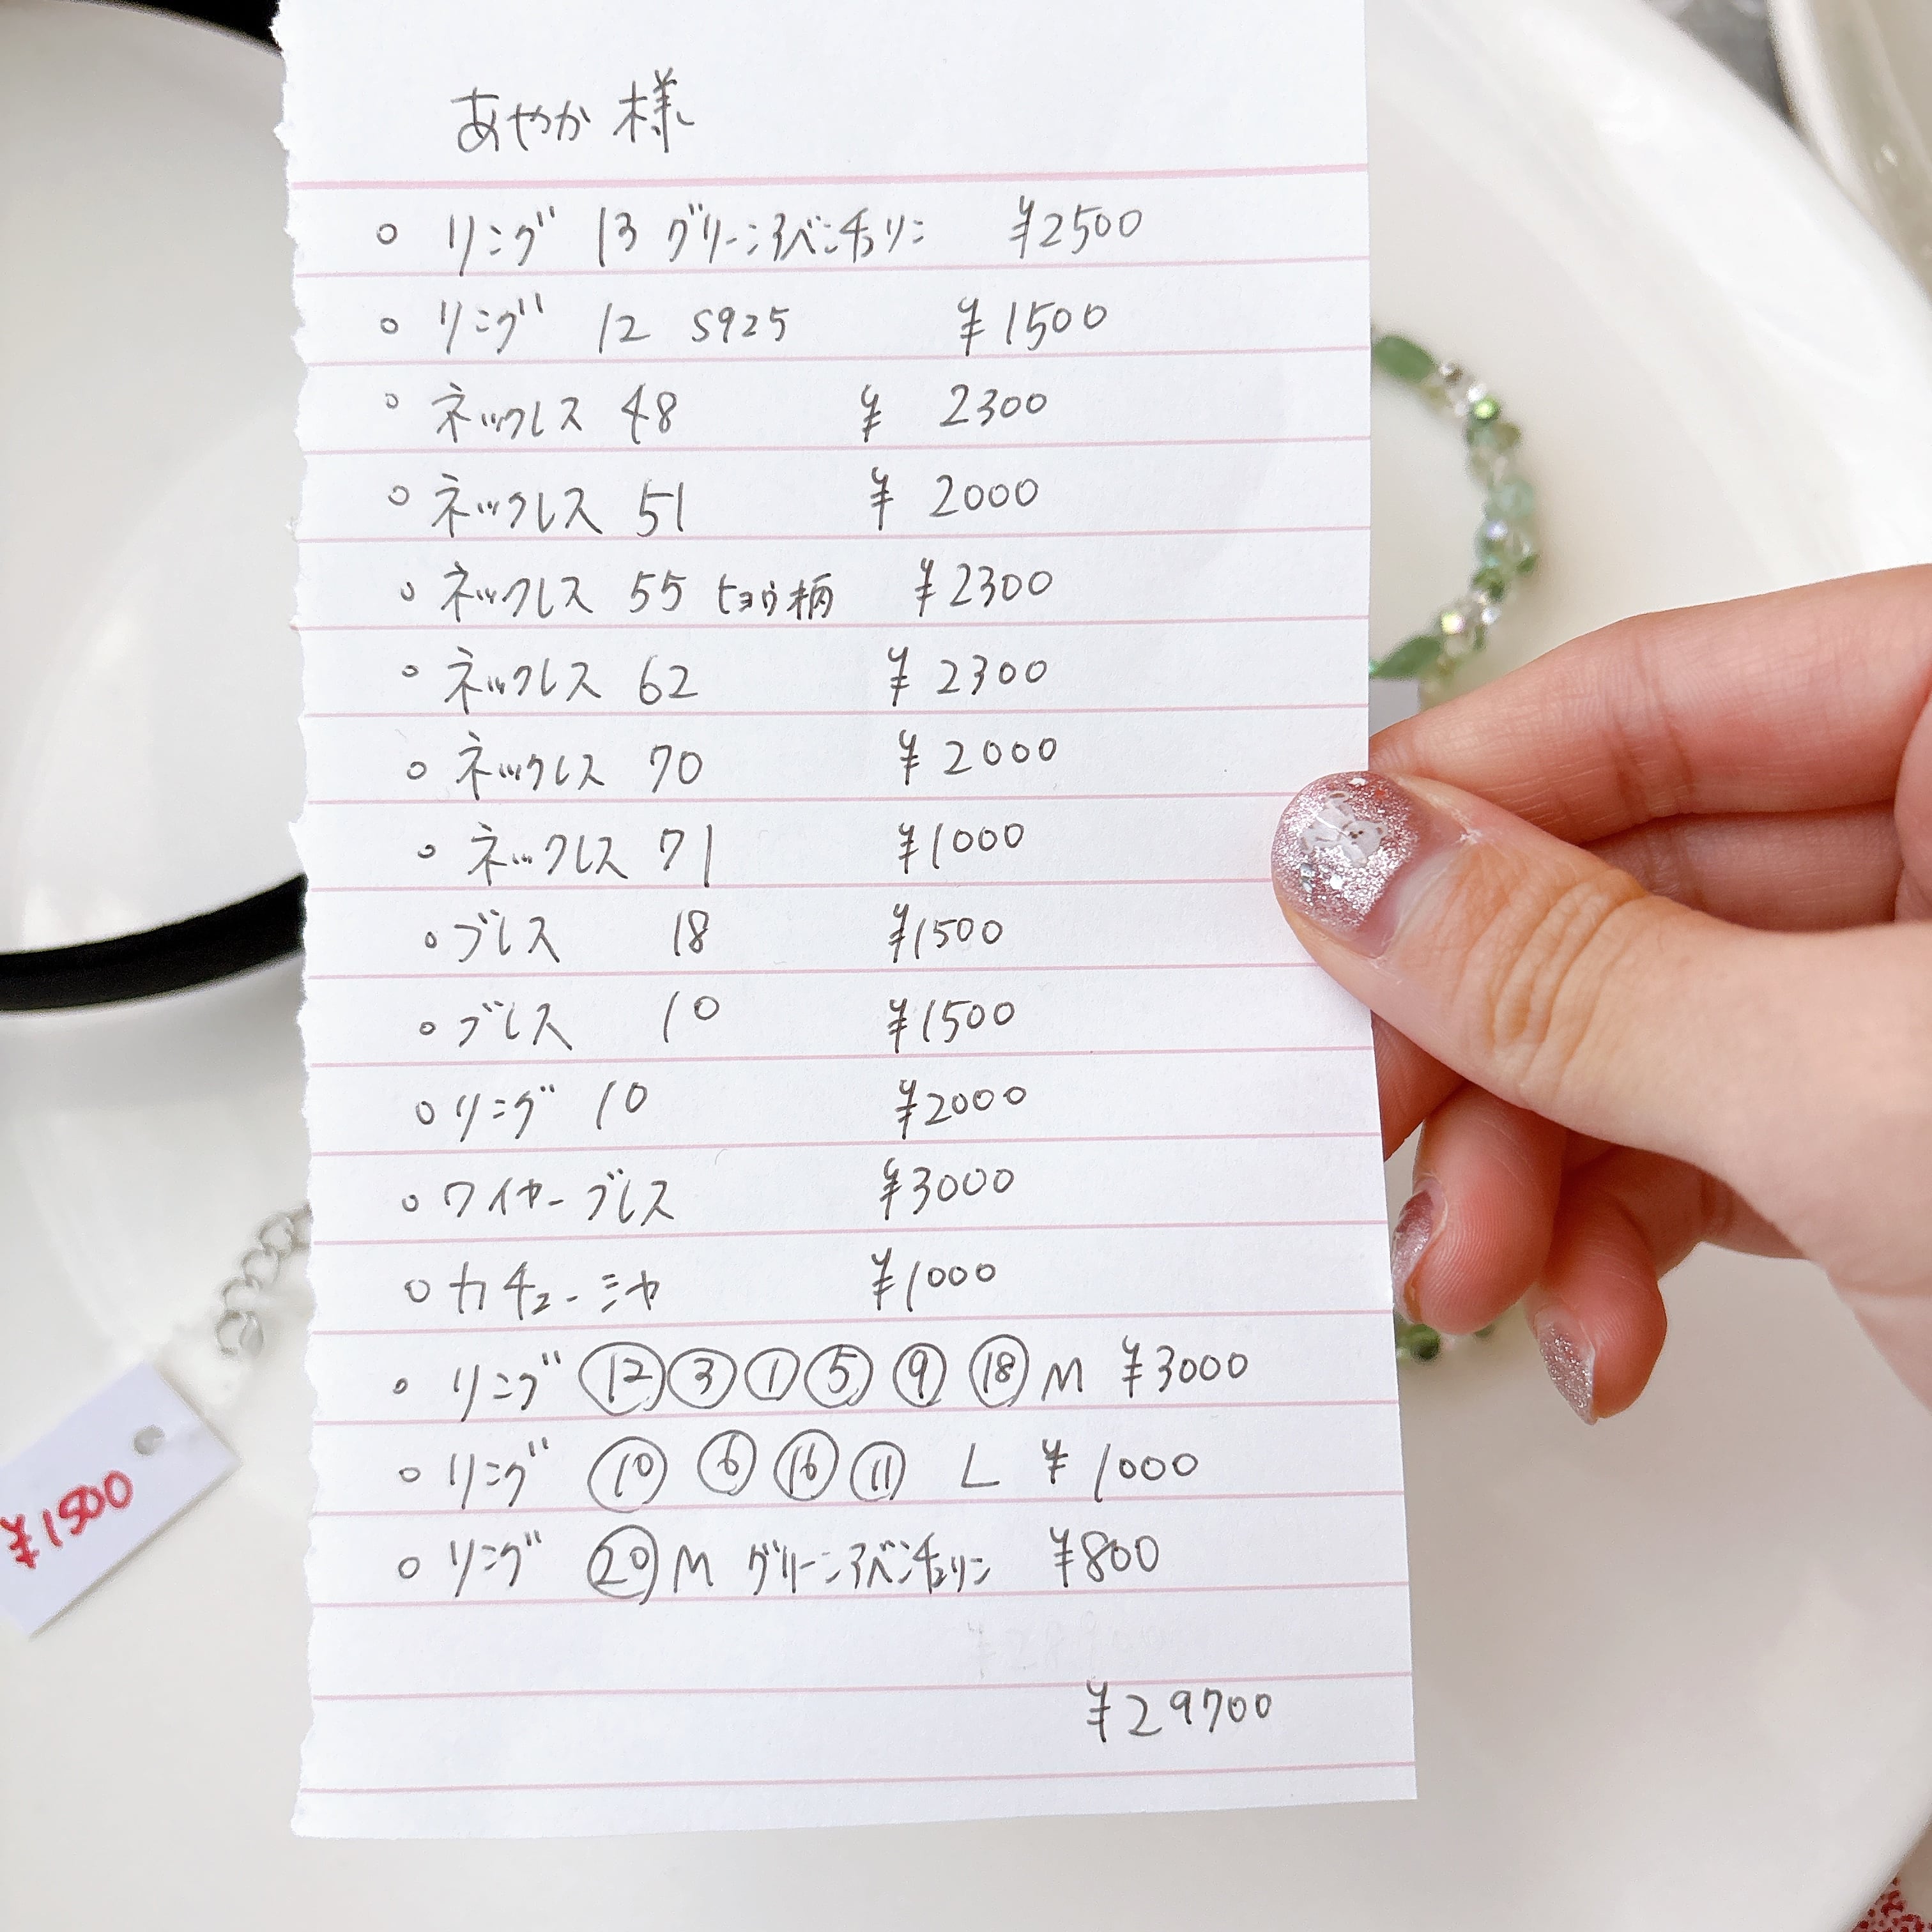 あやか 様
○ リング 13 グリーンアベンチュリン ¥2500
○ リング 12 S925 ¥1500
○ ネックレス 48 ¥ 2300
○ ネックレス 51 ¥ 2000
○ ネックレス 55 ヒョウ柄 ¥2300
○ ネックレス 62 ¥ 2300
○ ネックレス 70 ¥ 2000
○ ネックレス 71 ¥1000
○ ブレス 18 ¥1500
○ ブレス 10 ¥1500
○ リング 10 ¥2000
○ ワイヤーブレス ¥3000
○ カチューシャ ¥1000
○ リング ⑫③①⑤⑨⑱ M ¥3000
○ リング ⑩⑥⑯⑪ L ¥ 1000
○ リング ⑳ M グリーンアベンチュリン ¥800
¥29700
¥1500